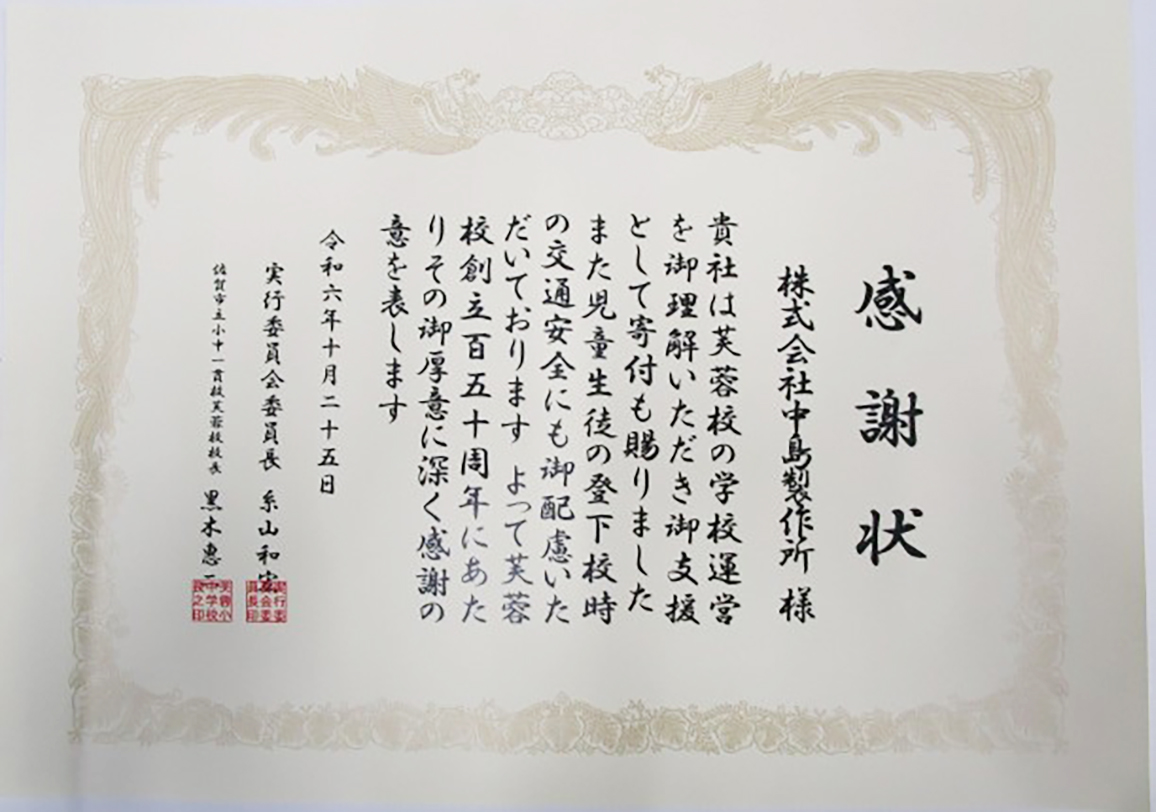 感謝状
株式会社中島製作所 様
貴社は芙蓉校の学校運営
を御理解いただき御支援
として寄付も賜りました
また児童生徒の登下校時
の交通安全にも御配慮いた
だいております よって芙蓉
校創立百五十周年にあた
りその御厚意に深く感謝の
意を表します
令和六年十月二十五日
実行委員会委員長 糸山和
佐賀市立小中一貫校芙蓉校校長 黒木惠